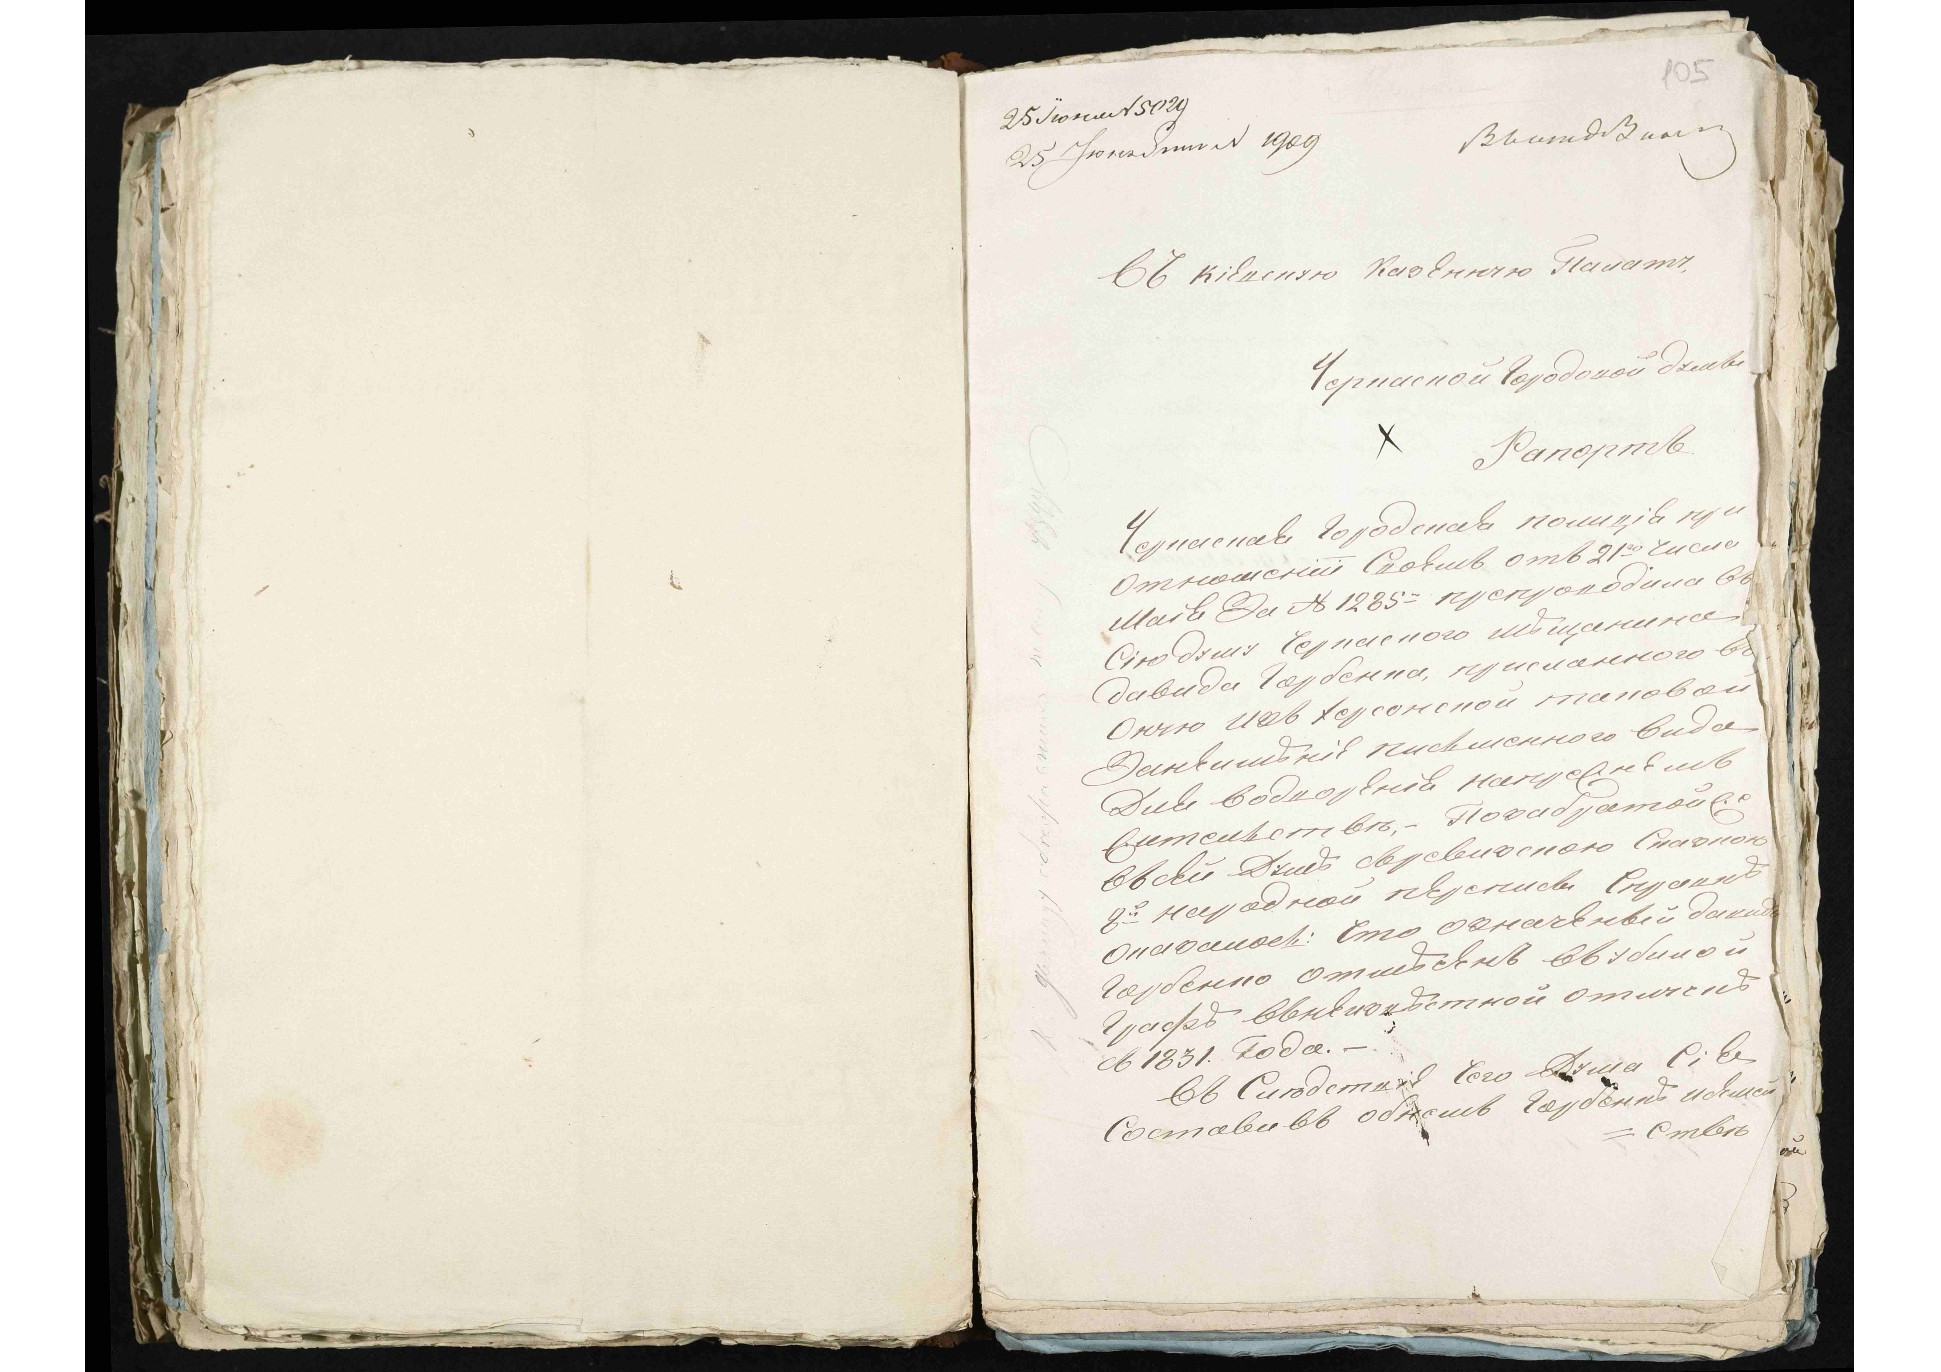 105
25 Июня № 5029
25 Июня № 1909
Въ Кіевскую Казенную Палату,
Черкаской Городовой думы
Рапортъ
Черкаская Городская полиція при
отношеніи Своемъ отъ 21го Числа
Маія За № 1285м препроводила въ
Сію думу Черкаского мѣщанина
давида Горбенка, присланного въ
Оную изъ херсонской таковой
Занеимѣніе письменного вида
Для водворенія
жительствѣ, –
Въсей Думѣ ревизскою Сказкою
8й народной переписи Справкѣ
оказалось: что означеный давидъ
Горбенко отмѣченъ въ убилой
Графѣ въ неизвѣстной отлучкѣ
съ 1831. Года. –
Въ Слѣдствіе чего Дума Сія
Составивъ обнемъ Горбенкѣ
= ствѣ